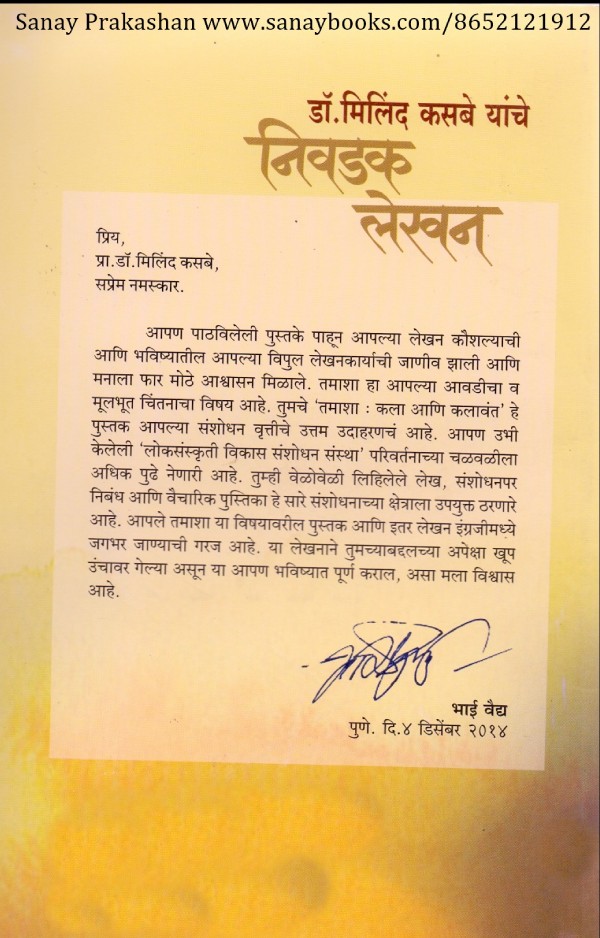 Sanay Prakashan www.sanaybooks.com/8652121912
डॉ.मिलिंद कसबे यांचे
निवडक
लेखन
प्रिय,
प्रा.डॉ.मिलिंद कसबे,
सप्रेम नमस्कार.
आपण पाठविलेली पुस्तके पाहून आपल्या लेखन कौशल्याची
आणि भविष्यातील आपल्या विपुल लेखनकार्याची जाणीव झाली आणि
मनाला फार मोठे आश्वासन मिळाले. तमाशा हा आपल्या आवडीचा व
मूलभूत चिंतनाचा विषय आहे. तुमचे ‘तमाशा : कला आणि कलावंत’ हे
पुस्तक आपल्या संशोधन वृत्तीचे उत्तम उदाहरणचं आहे. आपण उभी
केलेली ‘लोकसंस्कृती विकास संशोधन संस्था’ परिवर्तनाच्या चळवळीला
अधिक पुढे नेणारी आहे. तुम्ही वेळोवेळी लिहिलेले लेख, संशोधनपर
निबंध आणि वैचारिक पुस्तिका हे सारे संशोधनाच्या क्षेत्राला उपयुक्त ठरणारे
आहे. आपले तमाशा या विषयावरील पुस्तक आणि इतर लेखन इंग्रजीमध्ये
जगभर जाण्याची गरज आहे. या लेखनाने तुमच्याबद्दलच्या अपेक्षा खूप
उंचावर गेल्या असून या आपण भविष्यात पूर्ण कराल, असा मला विश्वास
आहे.
भाई वैद्य
पुणे. दि.४ डिसेंबर २०१४